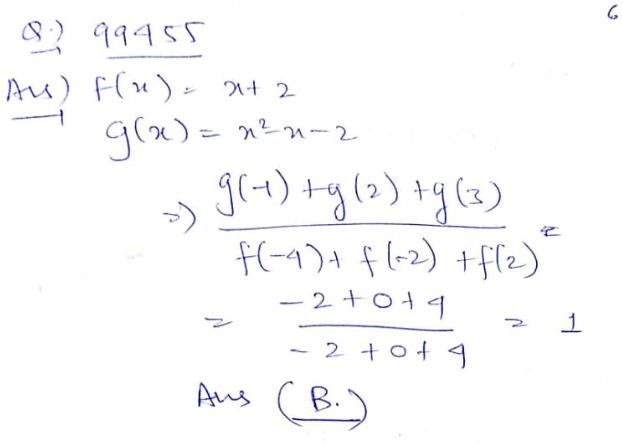 6
Q.) 99455
Ans) f(x) = x+ 2
g(x) = x²-x-2
=> g(-1) + g(2) + g(3) / f(-4) + f(-2) + f(2) =
= -2+0+4 / -2+0+4 = 1
Ans (B.)